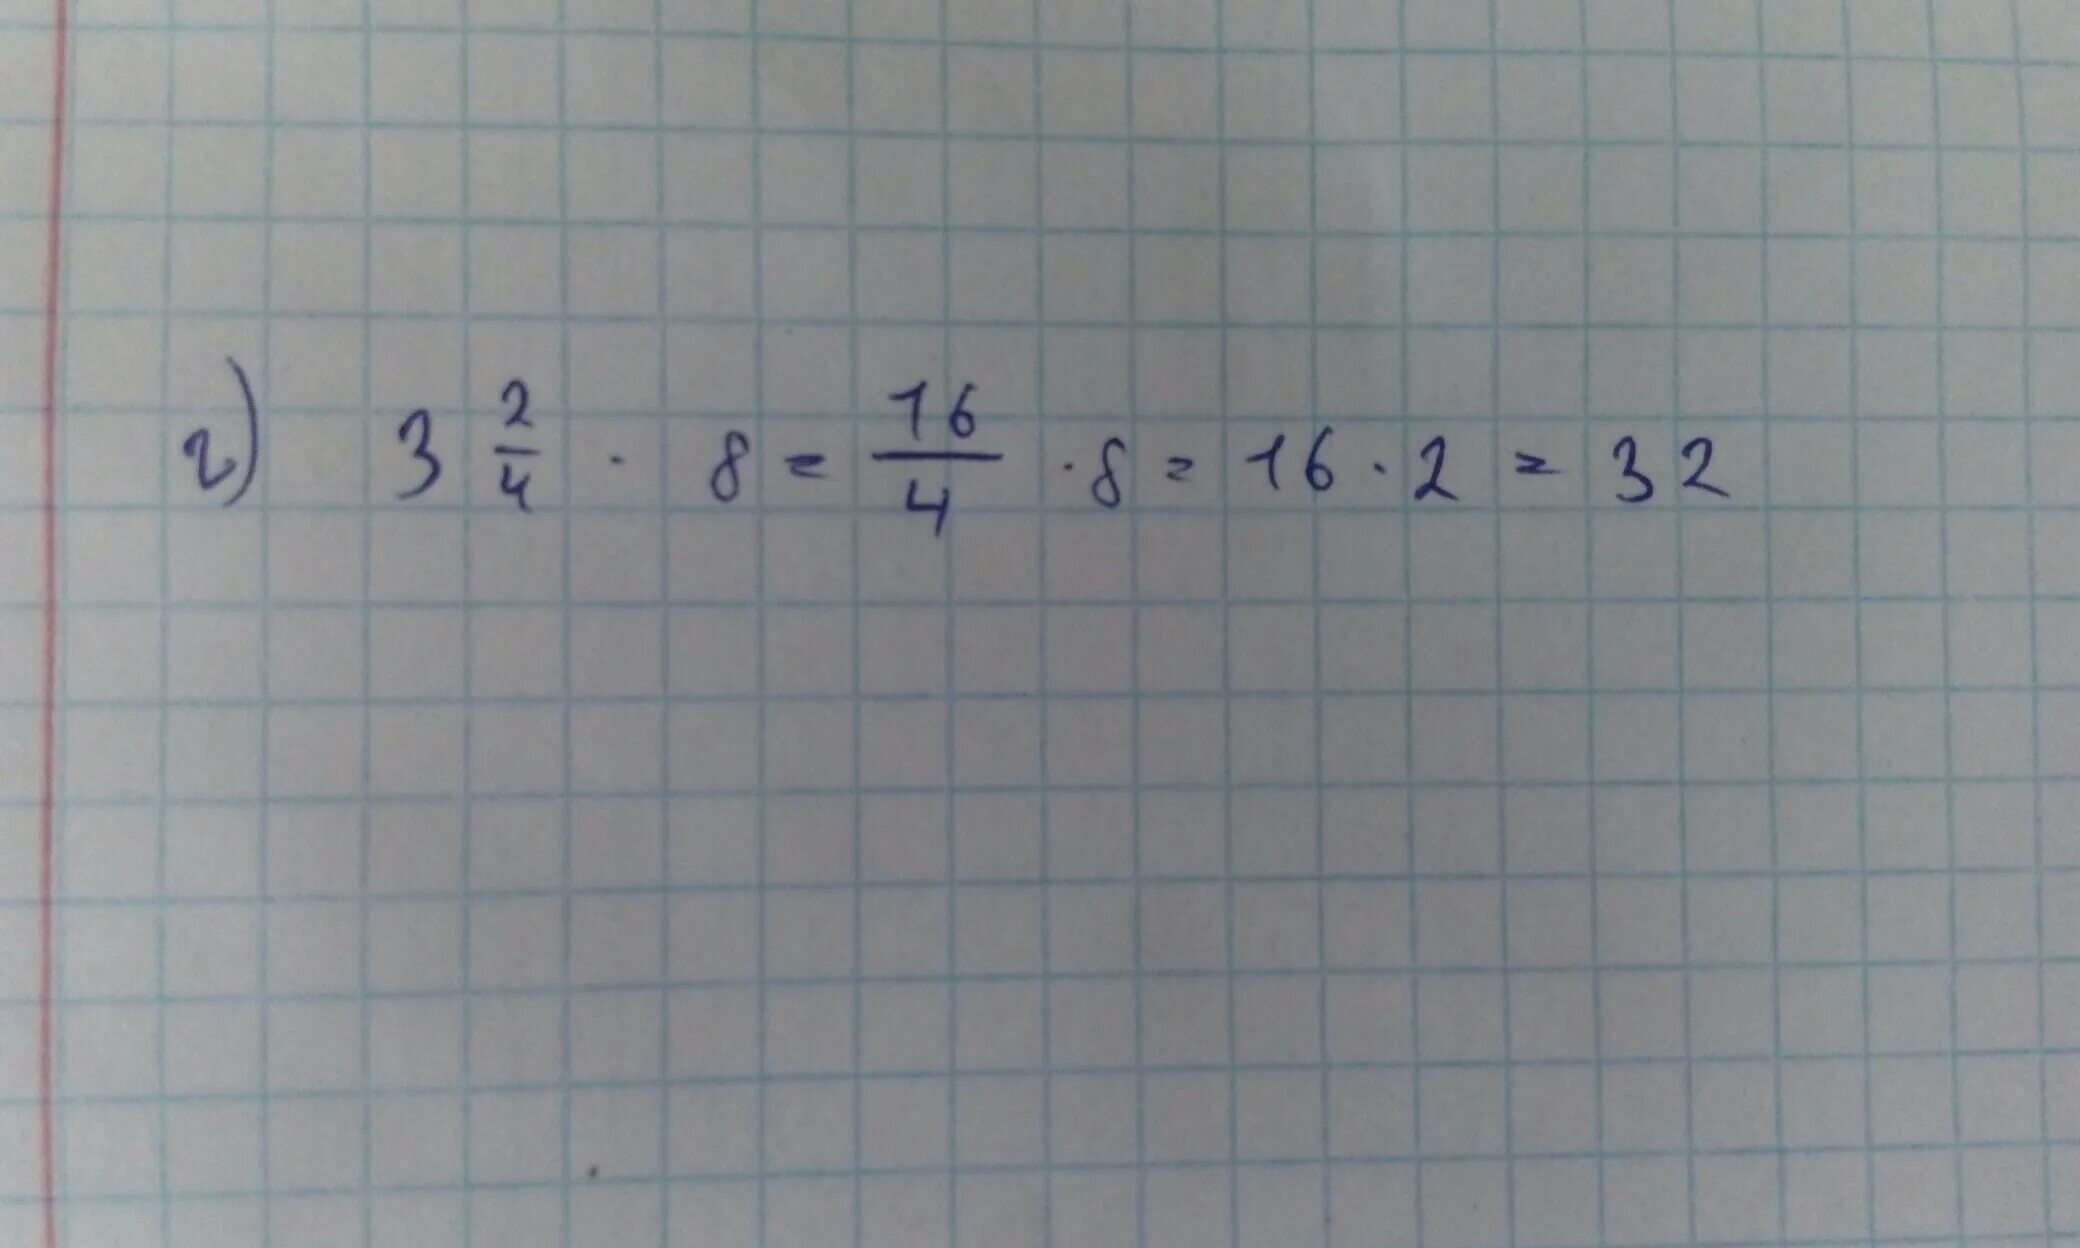 г) 3 2/4 · 8 = 16/4 · 8 = 16 · 2 = 32